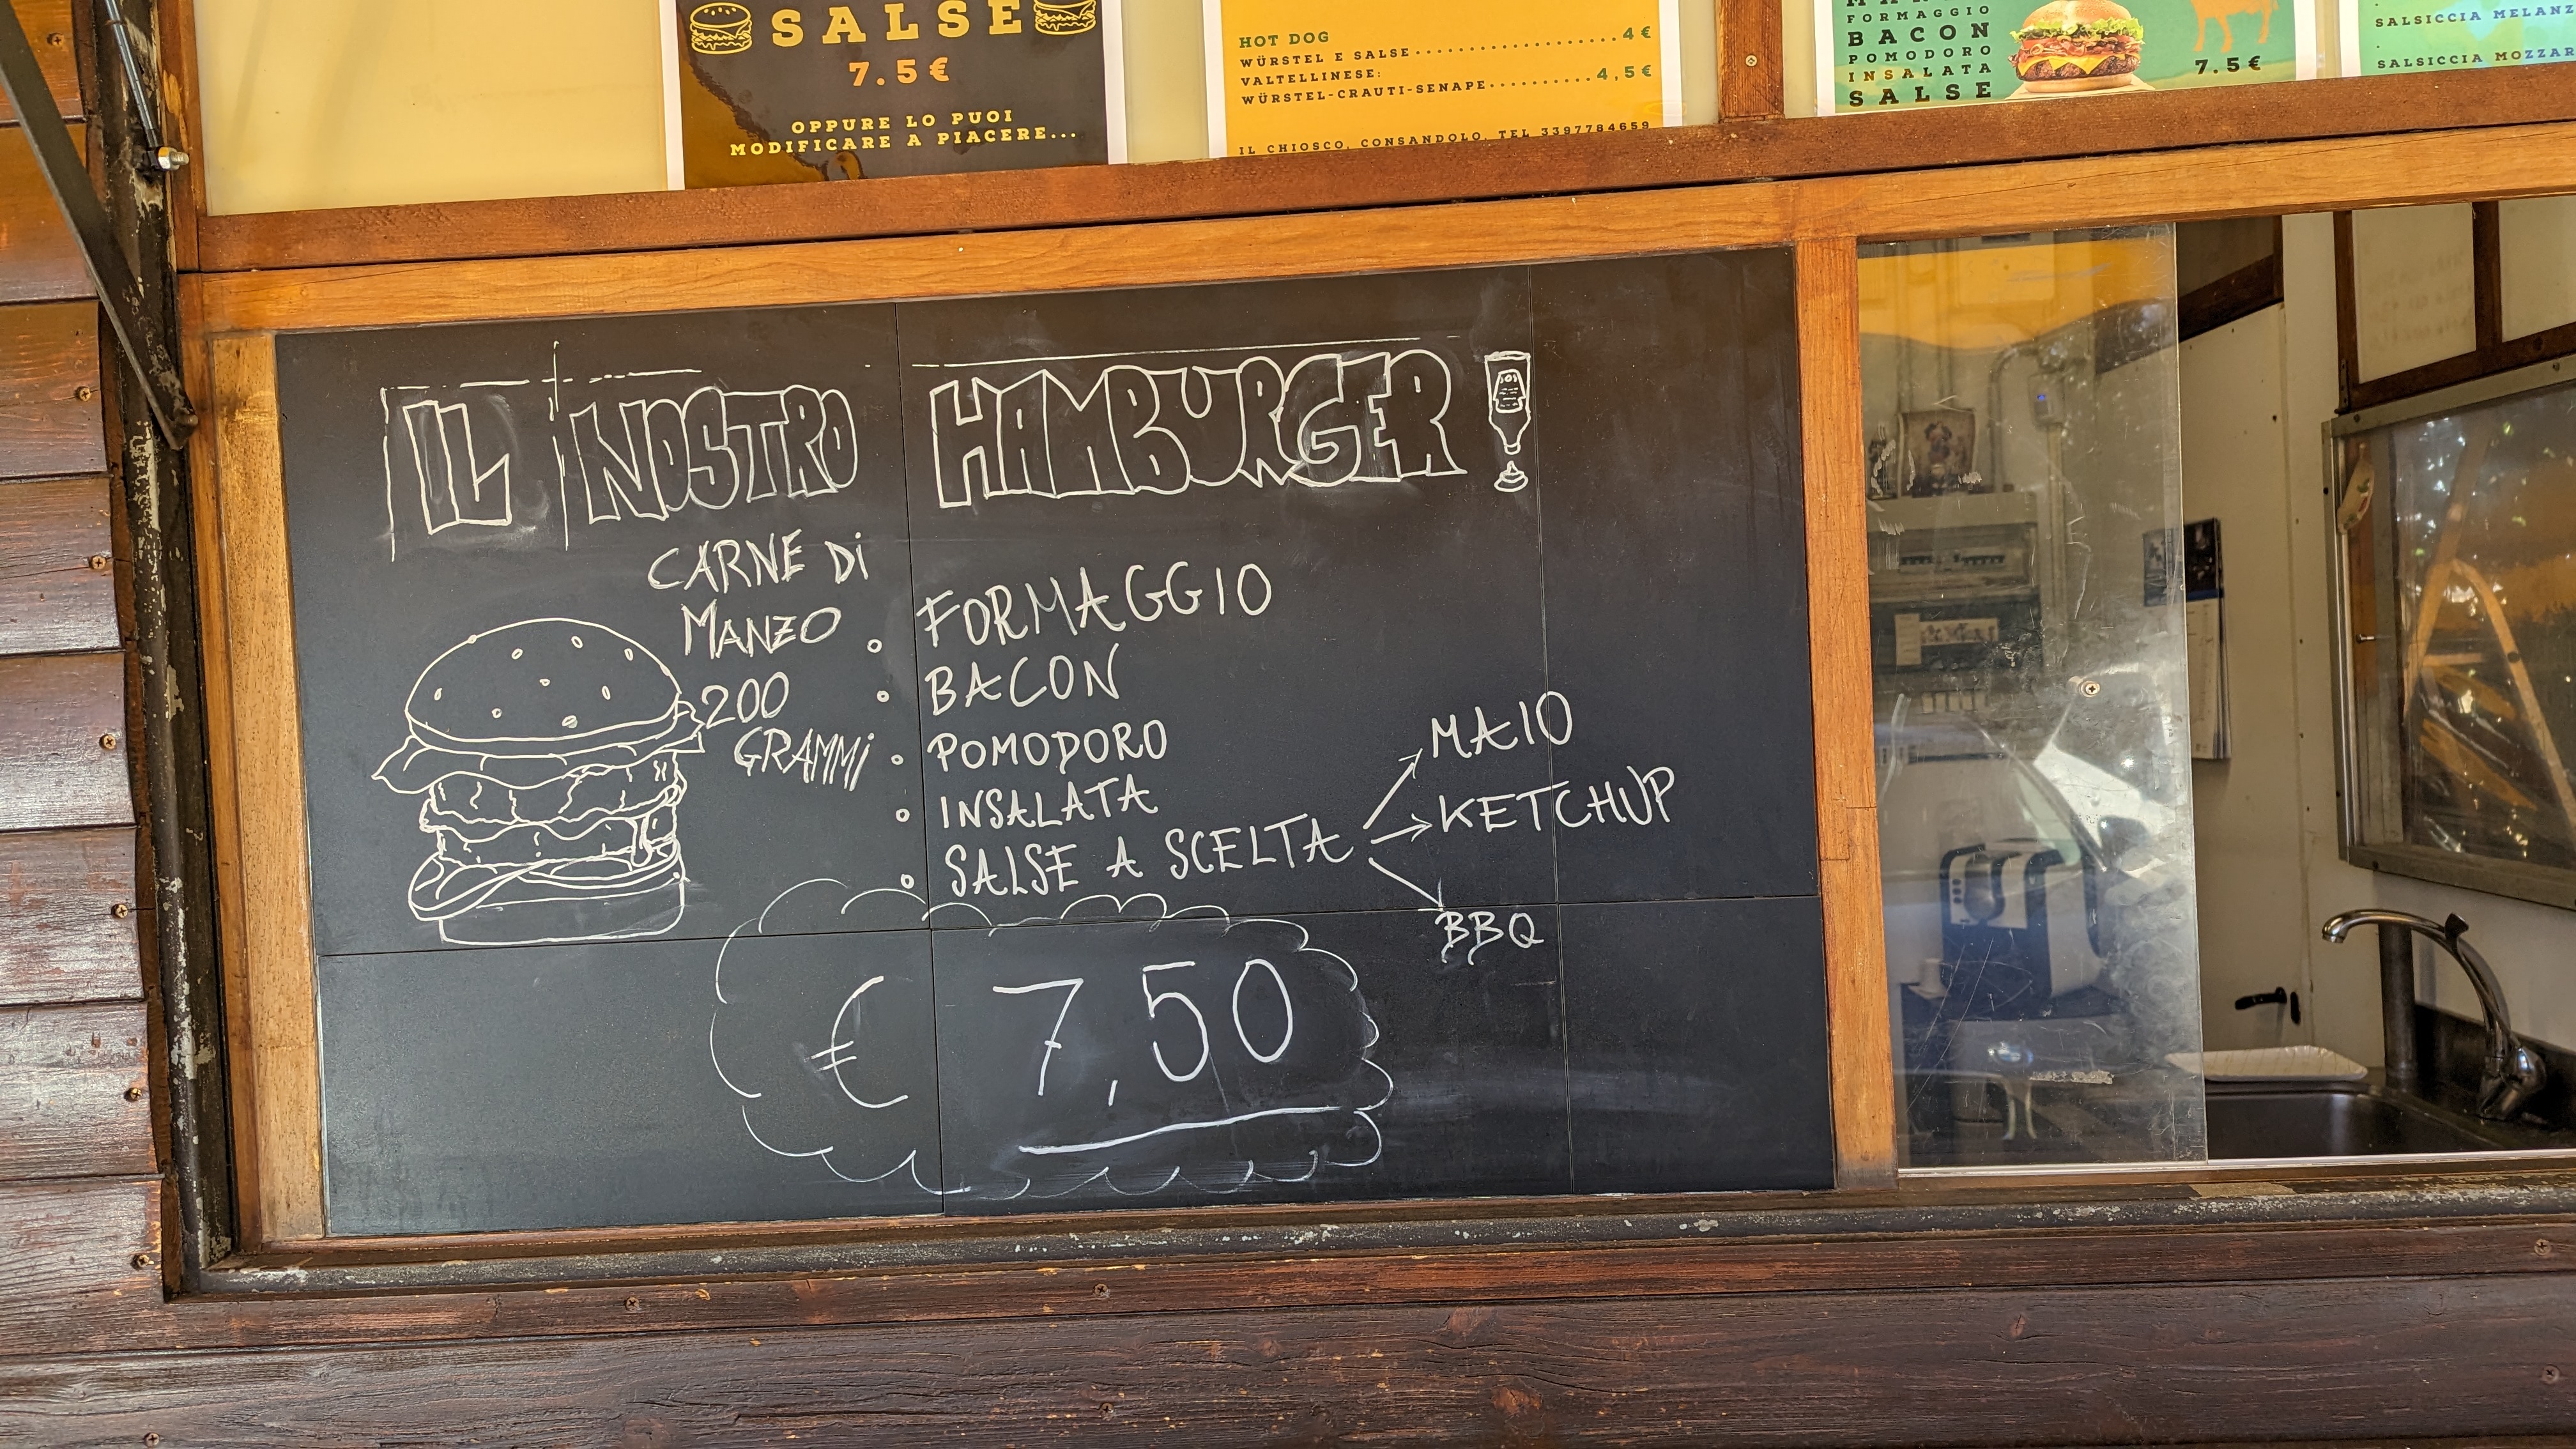 SALSE
7.5€
OPPURE LO PUOI
MODIFICARE A PIACERE...
HOT DOG
WÜRSTEL E SALSE...................4€
VALTELLINESE:
WÜRSTEL-CRAUTI-SENAPE..........4,5€
IL CHIOSCO, CONSANDOLO, TEL 3397784659
FORMAGGIO
BACON
POMODORO
INSALATA
SALSE
7.5€
SALSICCIA MELANZ
SALSICCIA MOZZAR
IL NOSTRO HAMBURGER
CARNE Di
MANZO
200
GRAMMi
FORMAGGIO
BACON
POMODORO
INSALATA
SALSE A SCELTA
MAIO
KETCHUP
BBQ
€ 7,50